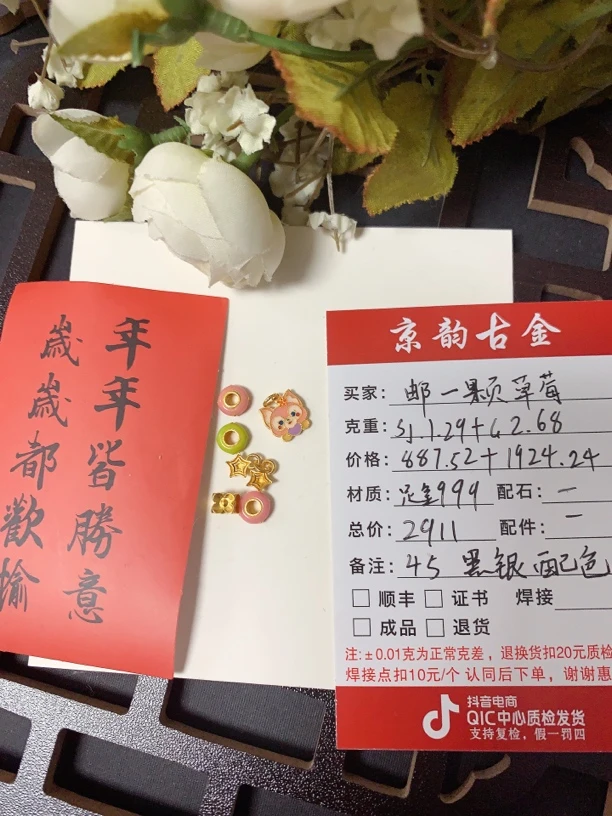 年年皆勝意
歲歲都歡愉
京韵古金
买家: 邮一颗草莓
克重: SJ.1.29+G2.68
价格: 887.52+1924.24
材质: 足金999 配石: 一
总价: 2911 配件: 一
备注: 45 黑银配色
□ 顺丰 □ 证书 焊接
□ 成品 □ 退货
注:±0.01克为正常克差，退换货扣20元质检
焊接点扣10元/个 认同后下单，谢谢惠
抖音电商
QIC中心质检发货
支持复检，假一罚四